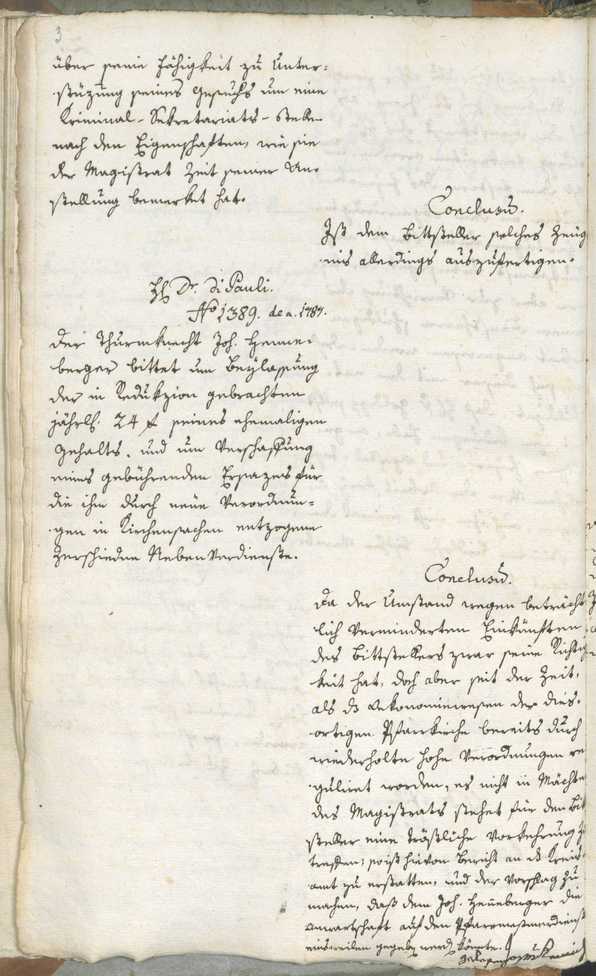 3
über seine Fähigkeit zu Unter:
stüzung seines Gesuchs um eine
Kriminal-Sekretariats-Stelle
nach den Eigenschaften, wie sie
der Magistrat Zeit seiner An:
stellung bemerket hat.
Conclusũ.
Ist dem Bittsteller solches Zeug
nis allerdings auszufertigen.
H Dr. di Pauli.
No 1389. de a. 1787.
Der Thurmknecht Joh. Henne:
berger bittet um Beylassung
der in Redukzion gebrachten
jährl. 24 f seines ehemaligen
Gehalts, und um Verschaffung
eines gebührenden Ersazes für
die ihm durch neue Verordnun:
gen in Kirchensachen entzogene
Zerschiedne Nebenverdienste.
Conclusũ.
Da der Umstand wegen beträcht
lich verminderten Einkünften
des Bittstellers zwar seine Richtig
keit hat, doch aber seit der Zeit,
als ds Oekonomiewesen der dies:
ortigen Pfarrkirche bereits durch
wiederholte hohe Verordnungen re
gulirt worden, es nicht in Mächte
des Magistrats stehet für den Bit
steller eine tröstliche Vorkehrung z
treffen; so ist hievon Bericht an ds Kreis
amt zu erstatten, und der Vorschlag zu
machen, daß dem Joh. Henneberger die
Anwartschaft auf den
einsweilen gegeben werdẽ könnte.